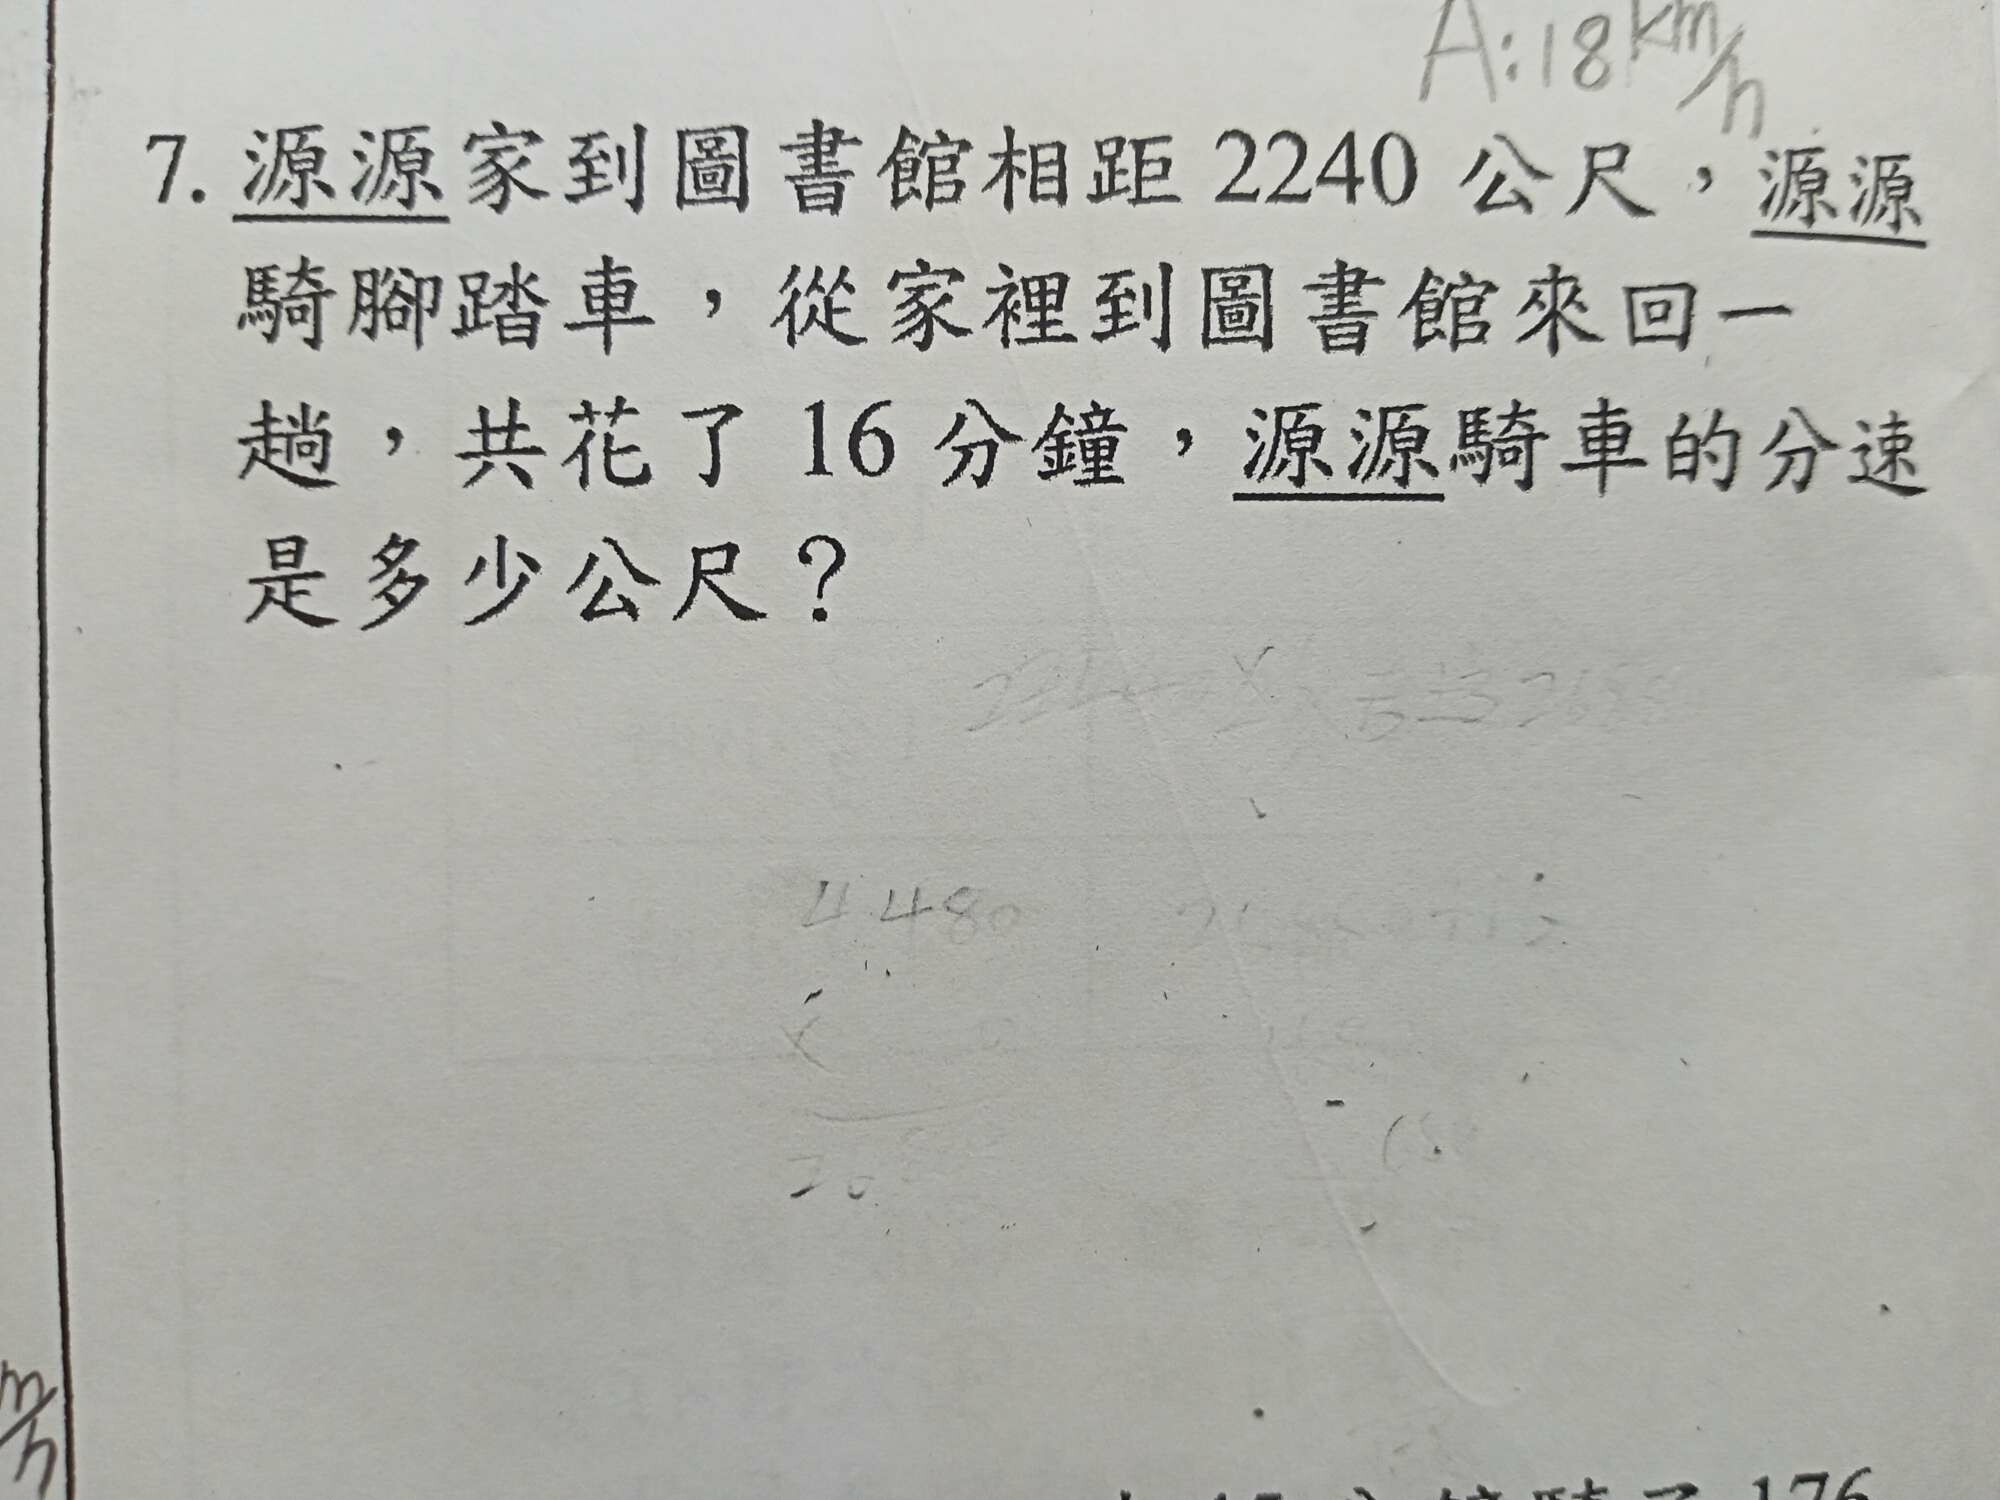 A:18km/h
7. 源源家到圖書館相距 2240 公尺，源源
騎腳踏車，從家裡到圖書館來回一
趟，共花了 16 分鐘，源源騎車的分速
是多少公尺？
4480
m/h
176